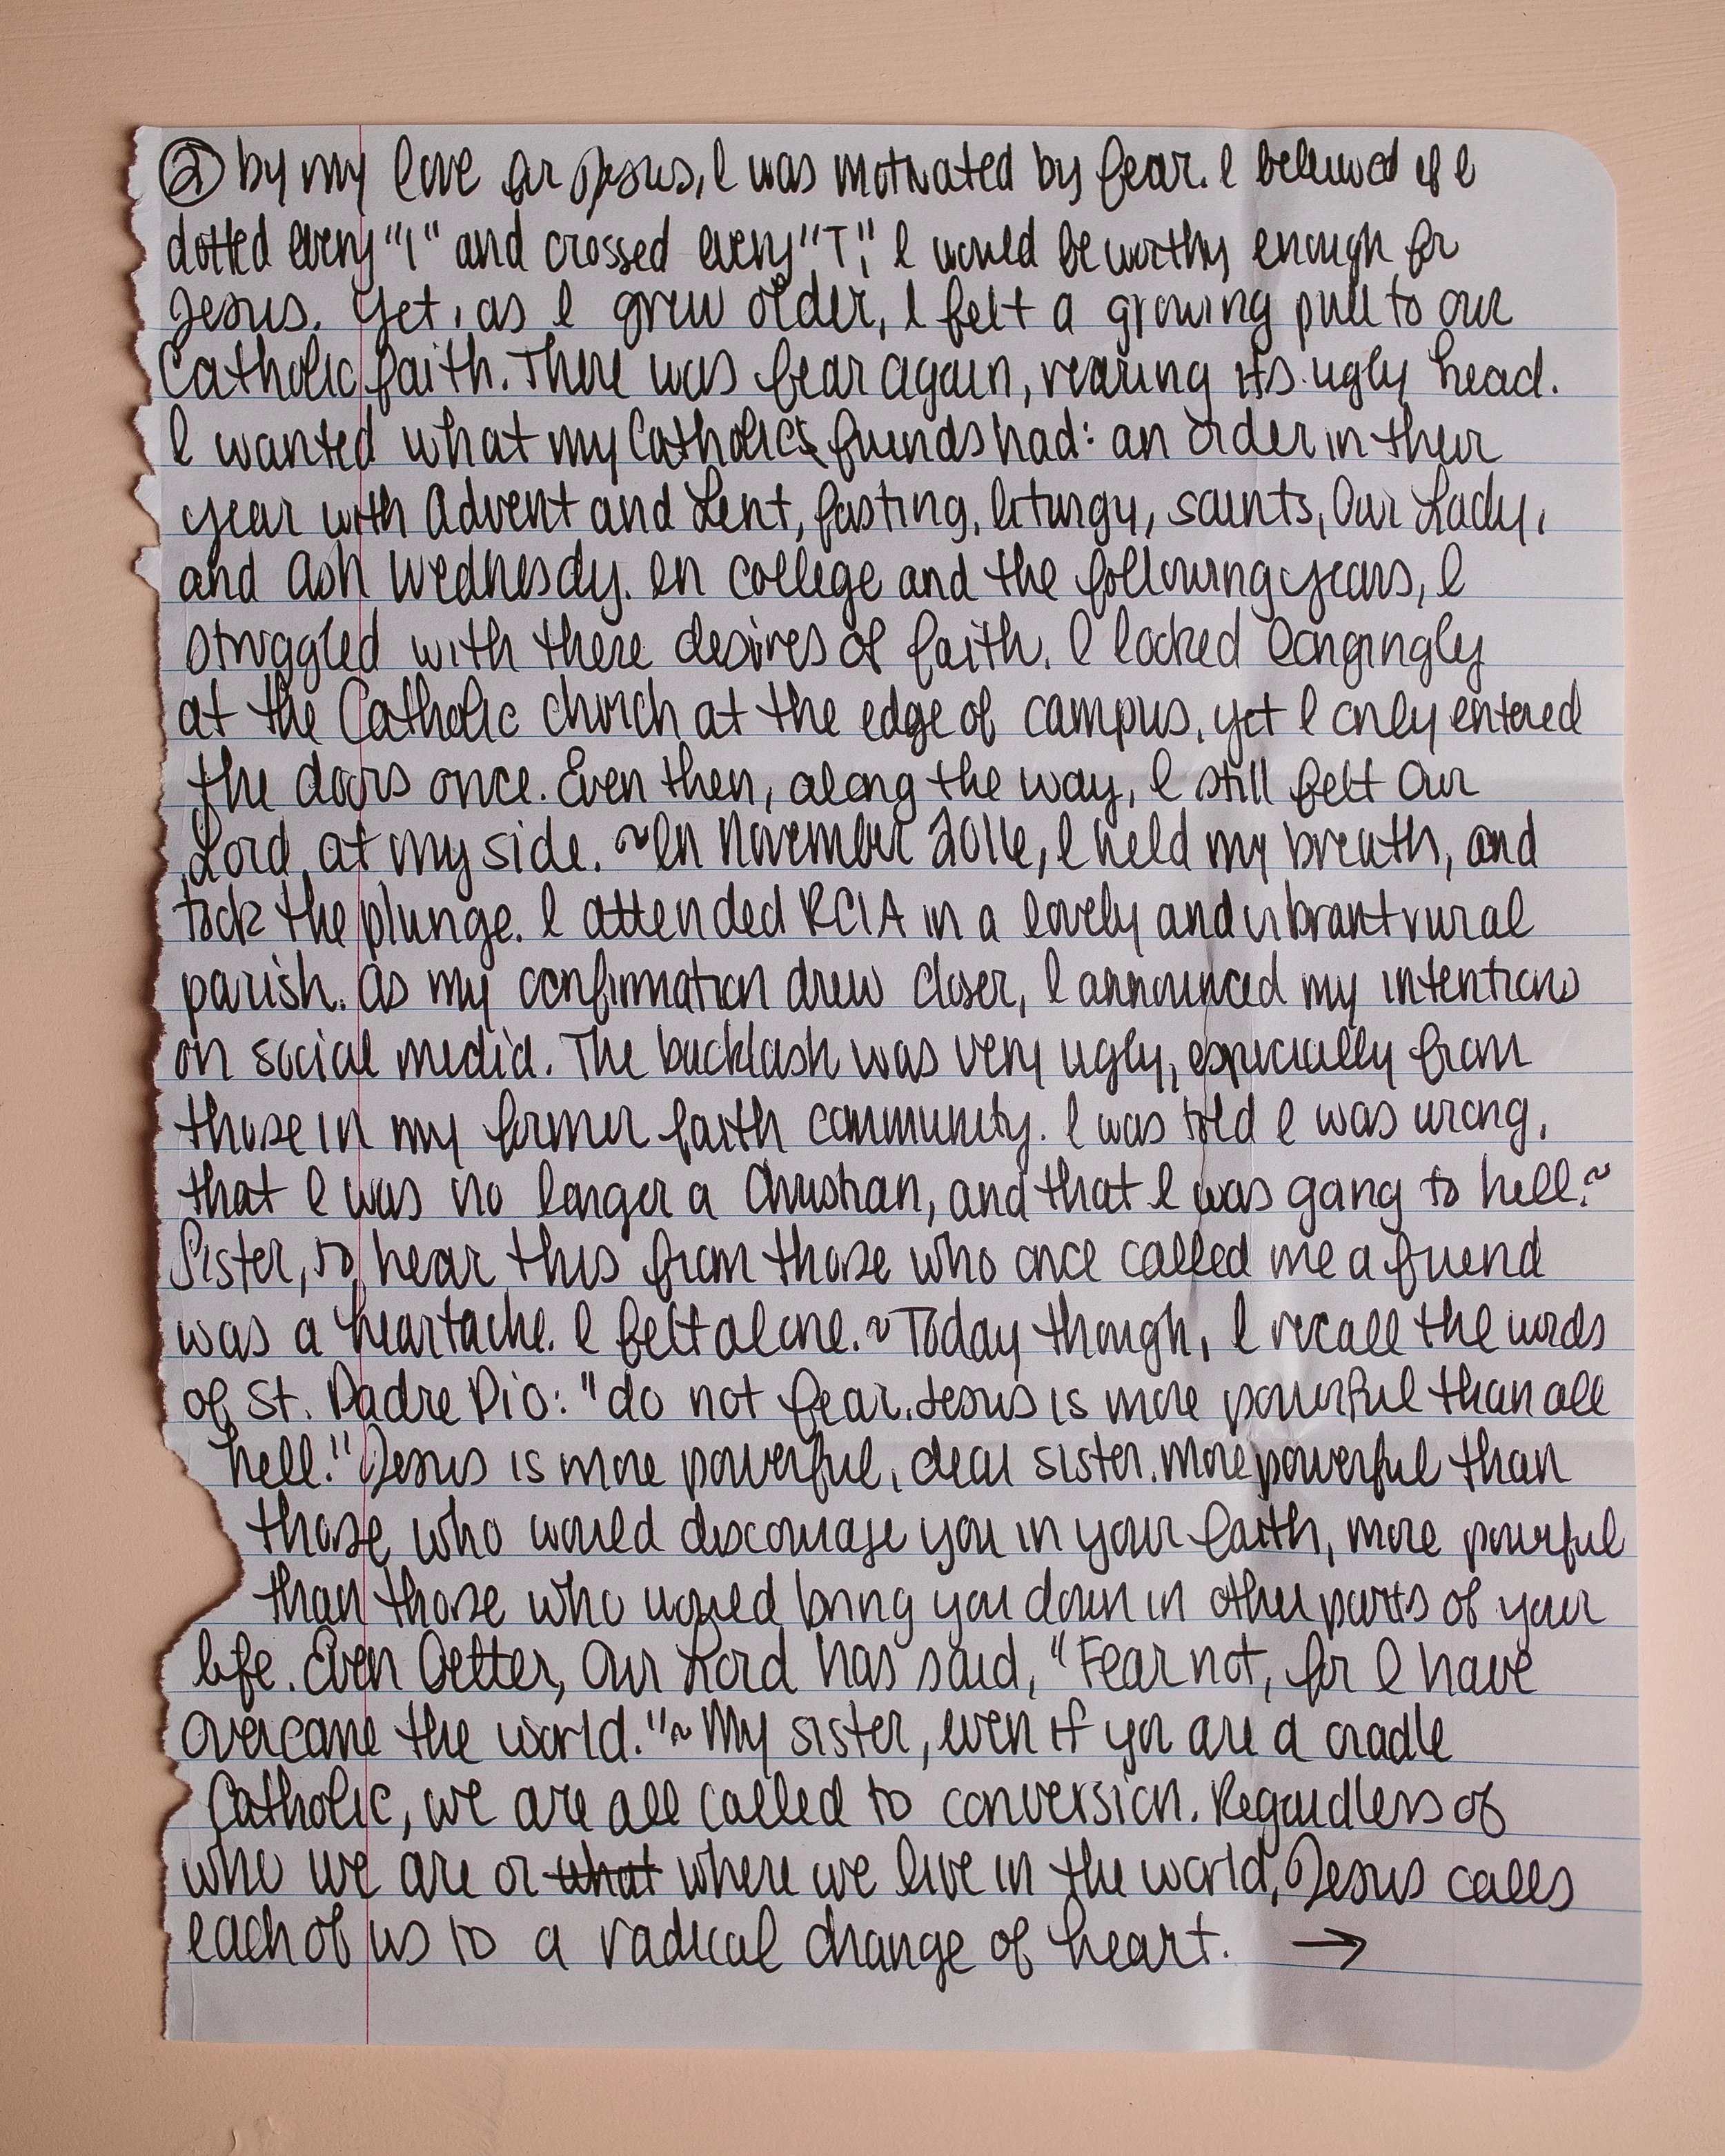 ② by my love for Jesus, I was motivated by fear. I believed if I
dotted every "I" and crossed every "T," I would be worthy enough for
Jesus. Yet, as I grew older, I felt a growing pull to our
Catholic faith. There was fear again, rearing its ugly head.
I wanted what my Catholics friends had: an order in their
year with Advent and Lent, fasting, liturgy, saints, Our Lady,
and Ash Wednesdy. In college and the following years, I
struggled with these desires of faith. I looked longingly
at the Catholic church at the edge of campus, yet I only entered
the doors once. Even then, along the way, I still felt Our
Lord at my side. ~ In November 2016, I held my breath, and
took the plunge. I attended RCIA in a lovely and vibrant rural
parish. As my confirmation drew closer, I announced my intentions
on social media. The backlash was very ugly, especially from
those in my former faith community. I was told I was wrong,
that I was no longer a Christian, and that I was going to hell. ~
Sister, to hear this from those who once called me a friend
was a heartache. I felt alone. ~ Today though, I recall the words
of St. Padre Pio: "do not fear. Jesus is more powerful than all
hell." Jesus is more powerful, dear sister. More powerful than
those who would discourage you in your faith, more powerful
than those who would bring you down in other parts of your
life. Even better, Our Lord has said, "Fear not, for I have
overcome the world." ~ My sister, even if you are a cradle
Catholic, we are all called to conversion. Regardless of
who we are or what where we live in the world, Jesus calls
each of us to a radical change of heart. →